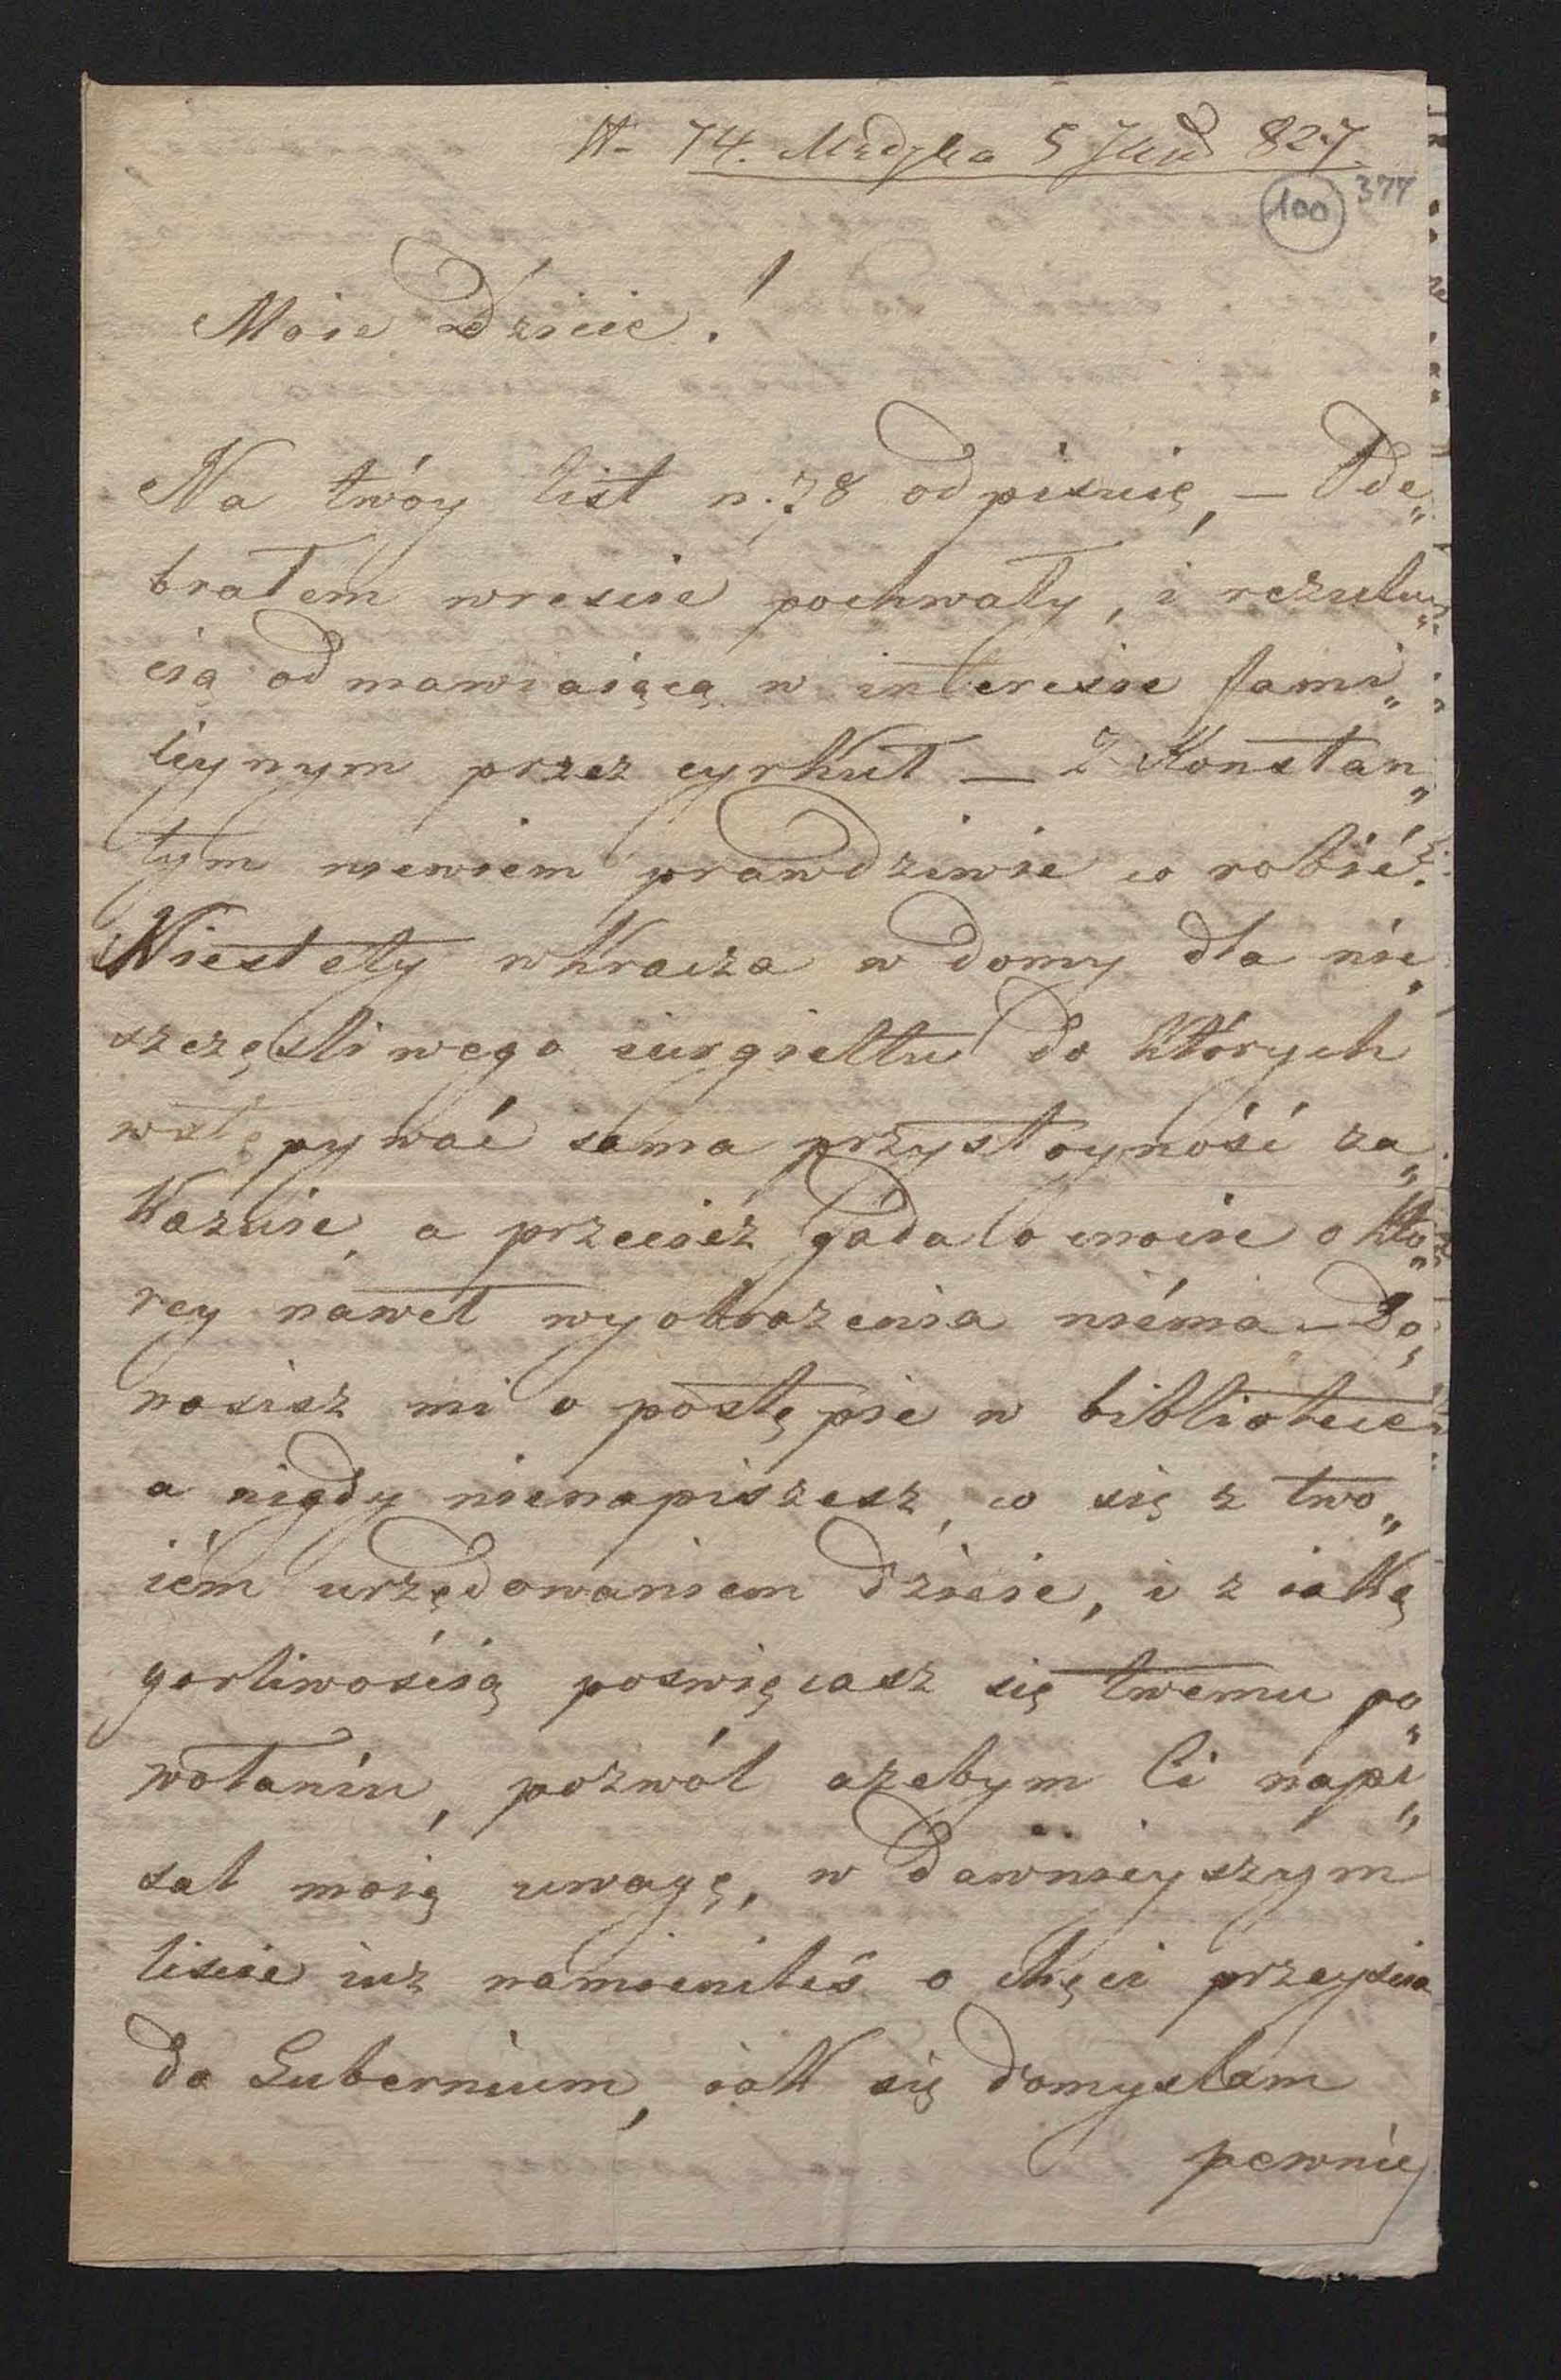 N- 74. Medyka 5 827.
100 377
Moie Dziecie!
Na twóy list n. 78 odpisuię, — Ode„
brałem wrescie pochwały, i rezulu„
cią odmawiaiącą w interesie fami„
liynym przez cyrkuł — Z Konstan„
tym niewiem prawdziwie co robić?
Niestety wkracza w domy dla nie„
szczęsliwego iurgieltu do których
wstępywać sama przystoyność za„
kazuie, a przecież gada o cnocie o któ„
rey nawet wyobrazenia niéma — Do„
nosisz mi o postępie w bibliotece
a nigdy nienapiszesz, co się z two„
iém urzędowaniem dzieie, i z iaką
gorliwością poswięcasz się twemu po„
wołaniu, pozwól azebym Ci napi„
sał moią uwagę, w dawnieyszym
liscie iuz namieniłeś o chęci przeyscia
do Gubernium, iak się domyslam
pewnie